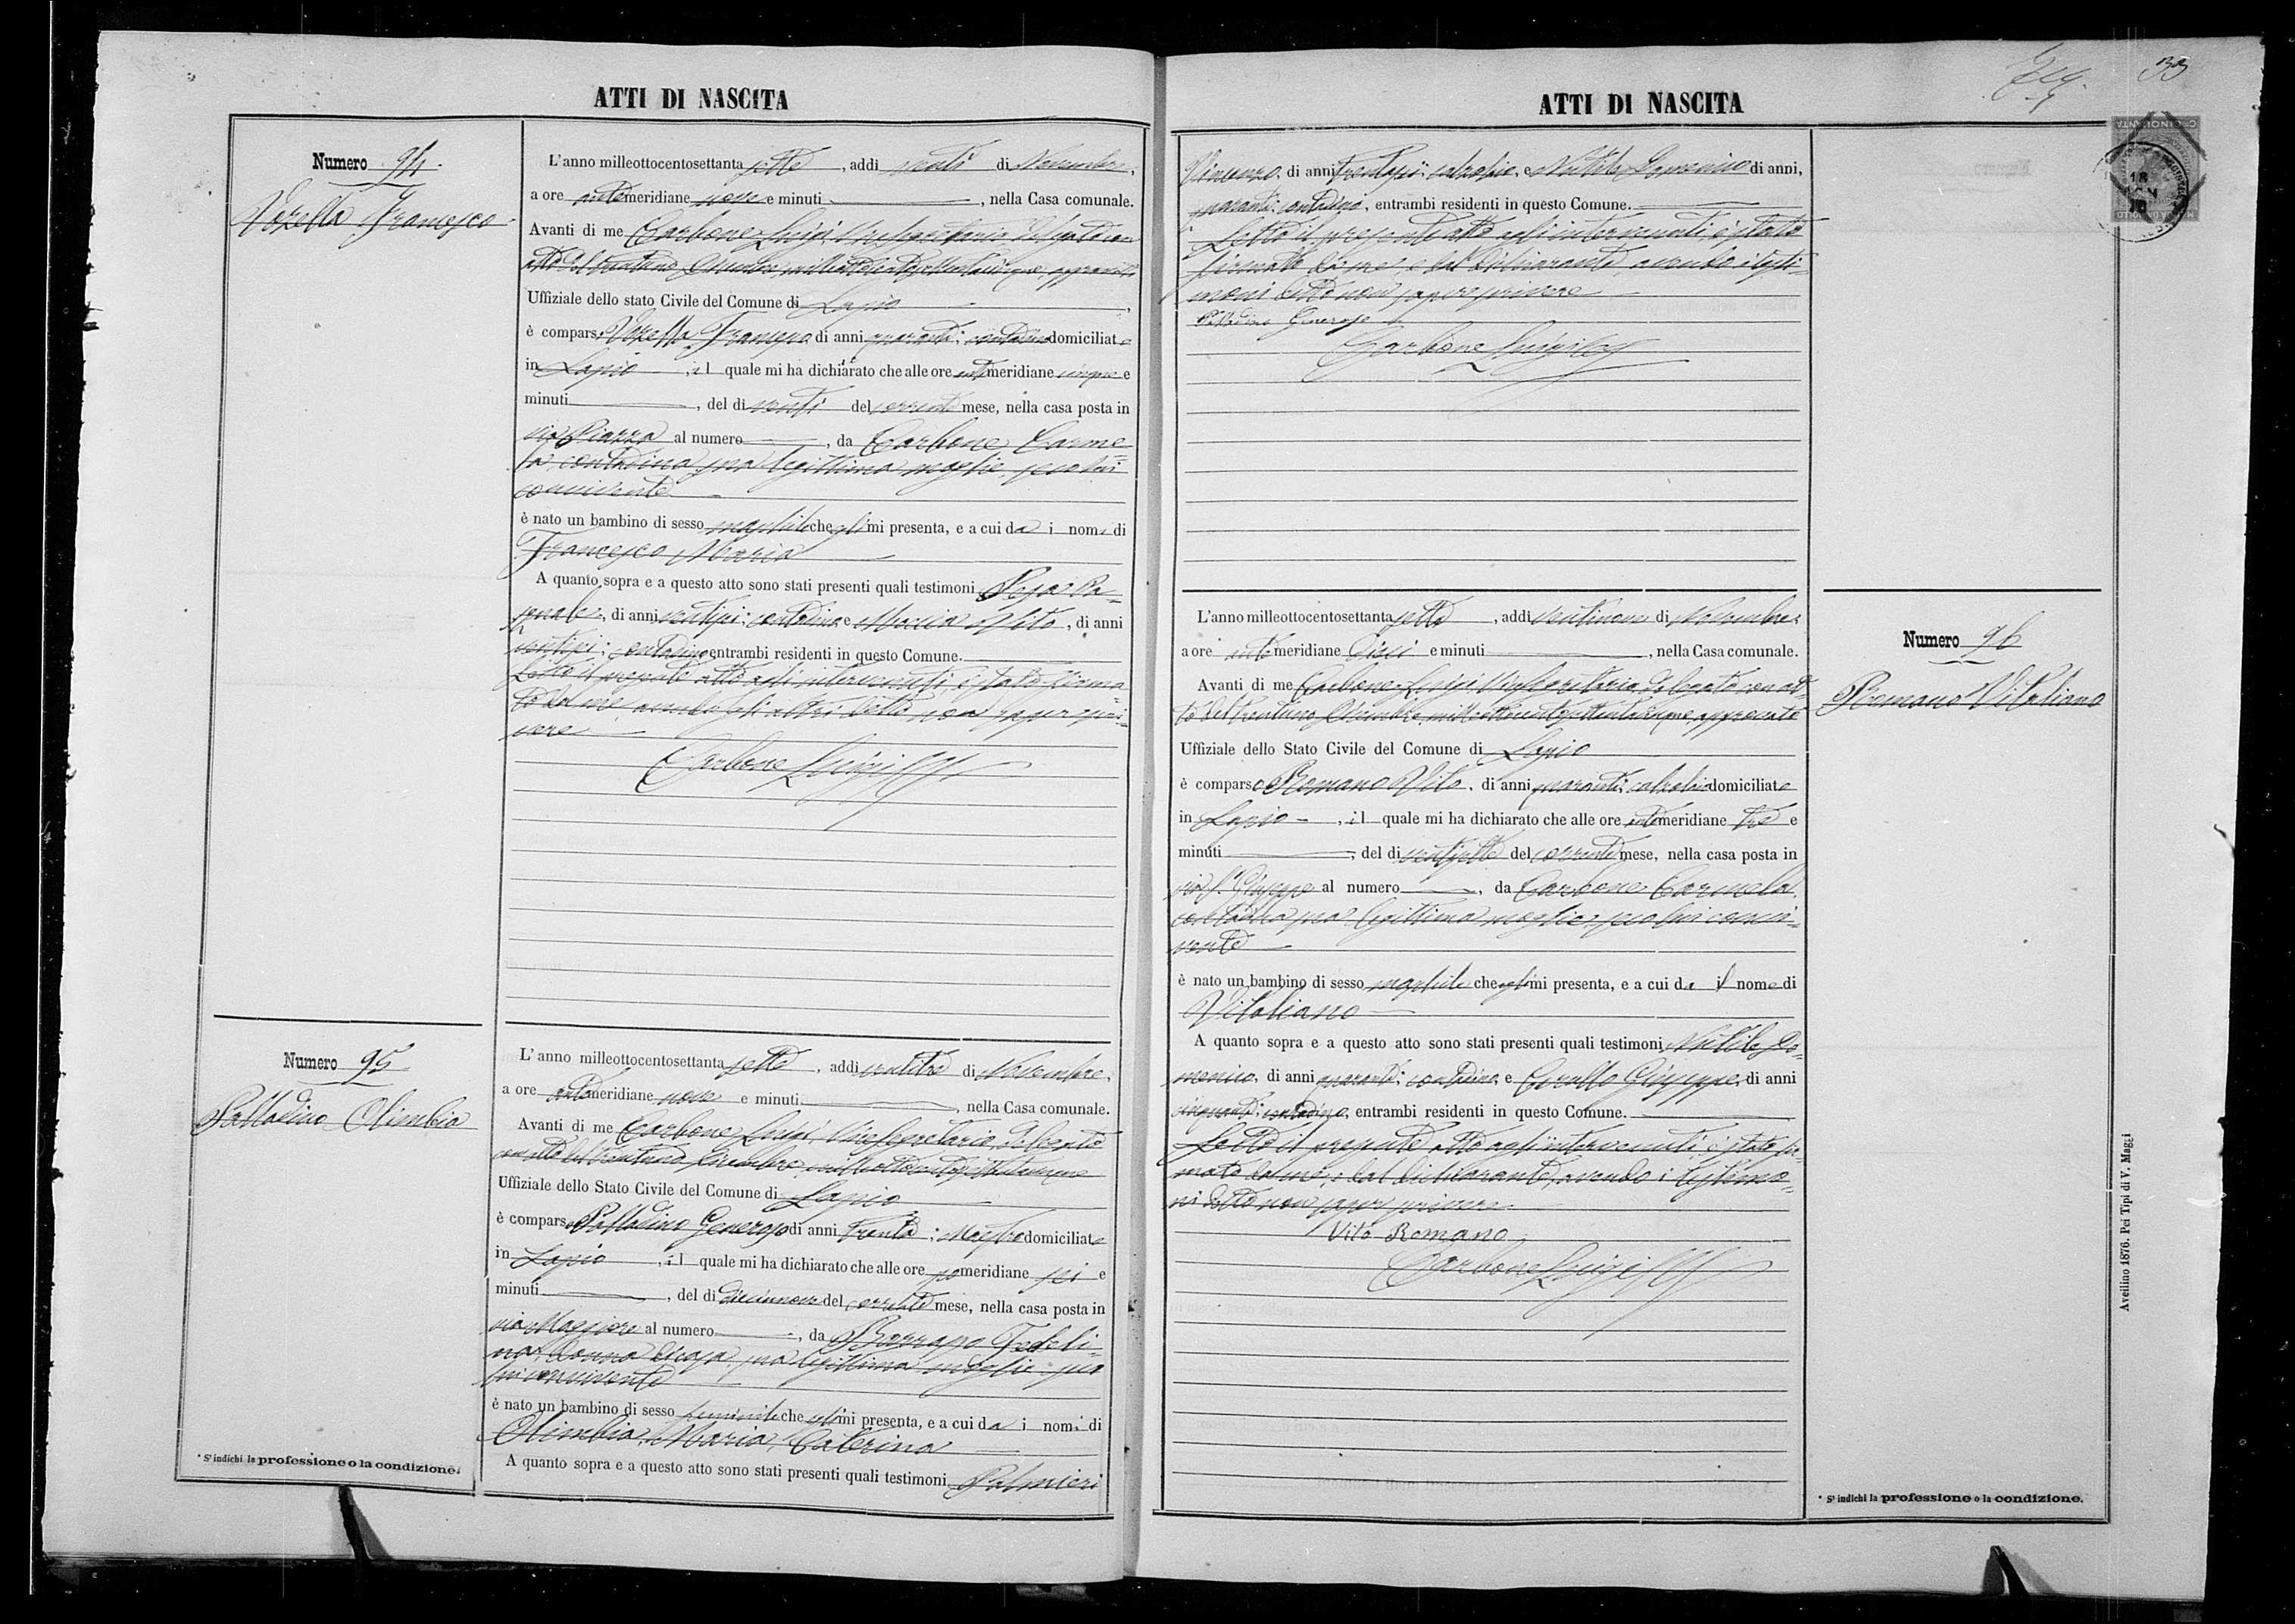 ATTI DI NASCITA
Numero 94.
Vozella Francesco
L'anno milleottocentosettanta sette, addì venti di Novembre,
a ore antemeridiane nove e minuti, nella Casa comunale.
Avanti di me Carbone Luigi, Vicesegretario delegato con
atto del trentuno Dicembre milleottocentosettantacinque, approvato
Uffiziale dello stato Civile del Comune di Lapio,
è comparso Vozella Francesco di anni quaranta; contadino domiciliato
in Lapio, il quale mi ha dichiarato che alle ore antimeridiane cinque e
minuti, del dì venti del corrente mese, nella casa posta in
via Piazza al numero, da Carbone Carme=
la, contadina sua legittima moglie, seco lui
convivente
è nato un bambino di sesso maschile che egli mi presenta, e a cui da i nomi di
Francesco, Maria
A quanto sopra e a questo atto sono stati presenti quali testimoni Pa=
squale, di anni contadino e Moccia Vito, di anni
contadino entrambi residenti in questo Comune.
Letto il presente atto agli intervenuti, è stato firma
to da me, avendo gli altri detto non saper scri=
vere
Carbone Luigi
Numero 95
Palladino Olimbia
L'anno milleottocentosettanta sette, addì ventitre di Novembre,
a ore antemeridiane nove e minuti, nella Casa comunale.
Avanti di me Carbone Luigi, Vice Segretario, delegato
con atto del trentuno Dicembre milleottocentosettantacinque
Uffiziale dello Stato Civile del Comune di Lapio
è comparso Palladino Generoso di anni trenta; Maestro domiciliato
in Lapio, il quale mi ha dichiarato che alle ore pomeridiane sei e
minuti, del dì diecinnove del corrente mese, nella casa posta in
via Maggiore al numero, da Fedeli=
na, donna di casa, sua legittima moglie seco
lui convivente
è nato un bambino di sesso feminile che egli mi presenta, e a cui da i nomi di
Olimbia, Maria, Caterina
A quanto sopra e a questo atto sono stati presenti quali testimoni Palmieri
* Si indichi la professione o la condizione.
ATTI DI NASCITA
33
Vincenzo, di anni trentasei; calzolaio, e Nutile Domenico di anni,
quaranta: contadino, entrambi residenti in questo Comune.
Letto il presente atto agli intervenuti, è stato
firmato da me, e dal dichiarante, avendo i testi=
moni detto non sapere scrivere
Palladino Generoso
Carbone Luigi
L'anno milleottocentosettanta sette, addì ventinove di Novembre,
a ore antemeridiane dieci e minuti, nella Casa comunale.
Avanti di me Carbone Luigi Vicesegretario, delegato con at=
to del trentuno Dicembre milleottocentosettantacinque, approvato
Uffiziale dello Stato Civile del Comune di Lapio
è comparso Romano Vito, di anni quaranta; calzolaio domiciliato
in Lapio, il quale mi ha dichiarato che alle ore antemeridiane tre e
minuti, del dì ventisette del corrente mese, nella casa posta in
via S. Giuseppe al numero, da Carbone Carmela,
contadina sua legittima moglie, seco lui convi=
vente
è nato un bambino di sesso maschile che egli mi presenta, e a cui da il nome di
Vitaliano
A quanto sopra e a questo atto sono stati presenti quali testimoni Nutile Do=
menico, di anni quaranta; contadino e Cerullo Giuseppe, di anni
cinquanta; contadino, entrambi residenti in questo Comune.
Letto il presente atto agli intervenuti, è stato fir=
mato da me, e dal dichiarante, avendo i testimo=
ni detto non saper scrivere
Vito Romano
Carbone Luigi
Numero 96
Romano Vitaliano
Avellino 1876. Pei Tipi di V. Maggi
* Si indichi la professione o la condizione.